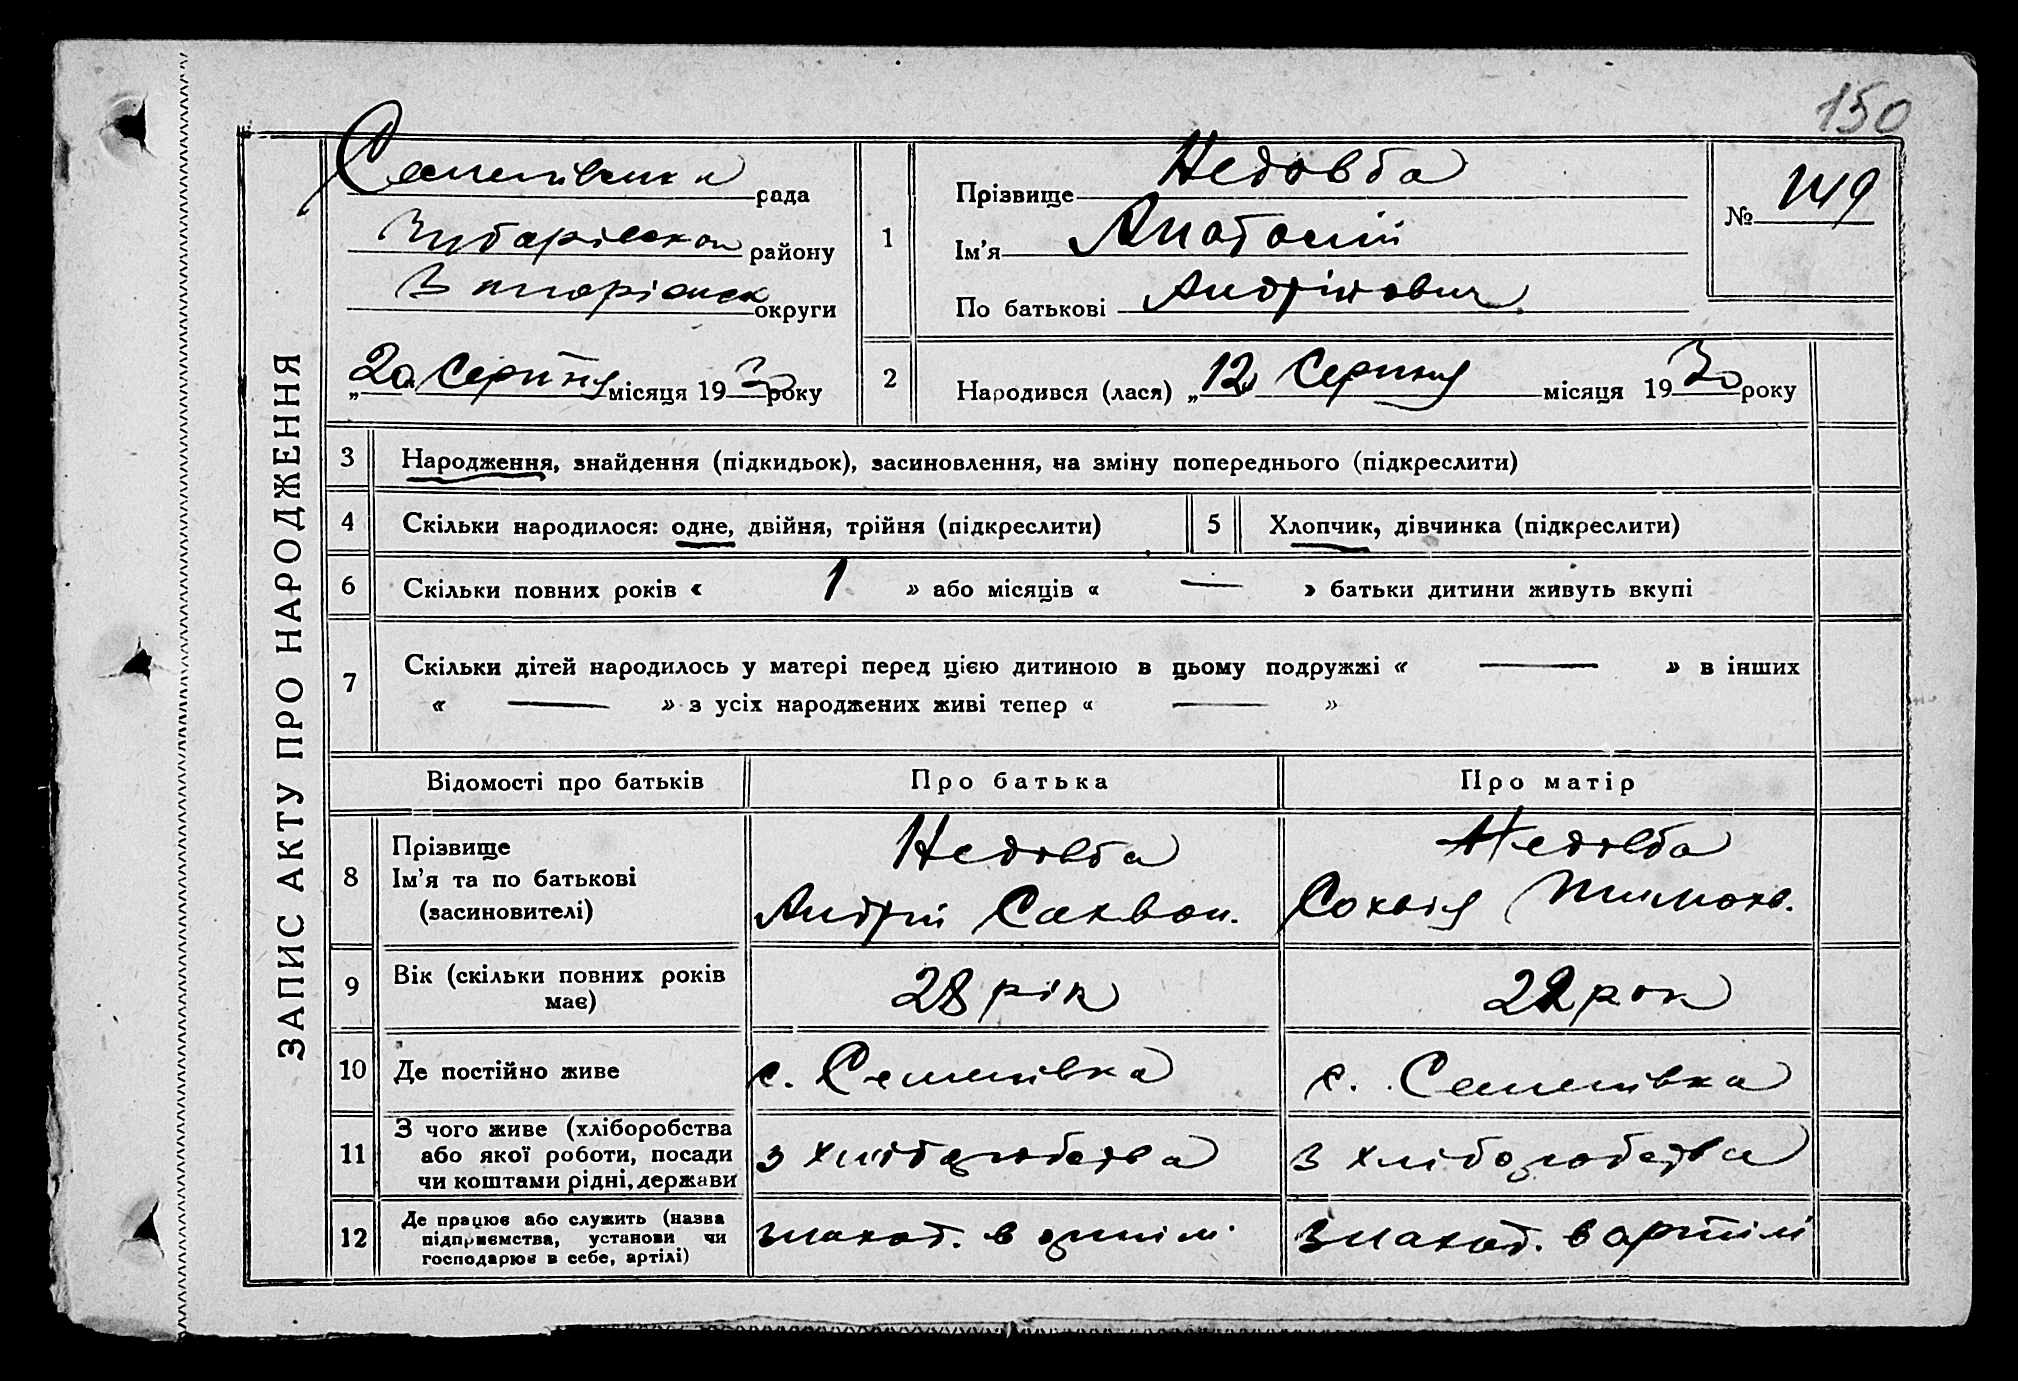 150
ЗАПИС АКТУ ПРО НАРОДЖЕННЯ
Семенівська рада
району
округи
„20 Серпня місяця 1930 року
1
Прізвище Недовба
Ім'я Анатолій
По батькові Андрійович
№ 149
2
Народився (лася) „12" Серпня місяця 1930 року
3 Народження, знайдення (підкидьок), засиновлення, на зміну попереднього (підкреслити)
4 Скільки народилося: одне, двійня, трійня (підкреслити)
5 Хлопчик, дівчинка (підкреслити)
6 Скільки повних років « 1 » або місяців « — » батьки дитини живуть вкупі
7 Скільки дітей народилось у матері перед цією дитиною в цьому подружжі « — » в інших
« — » з усіх народжених живі тепер « — »
Відомості про батьків Про батька Про матір
8 Прізвище
Ім'я та по батькові
(засиновителі)
Недовба
Андрій Саквон.
Недовба
Сохвія Тимохв.
9 Вік (скільки повних років
має)
28 рік
22 рок
10 Де постійно живе с. Семенівка с. Семенівка
11 З чого живе (хліборобства
або якої роботи, посади
чи коштами рідні, держави
з хліборобства
з хліборобства
12 Де працює або служить (назва
підприємства, установи чи
господарює в себе, артілі)
знаход. в артілі
знаход. в артілі